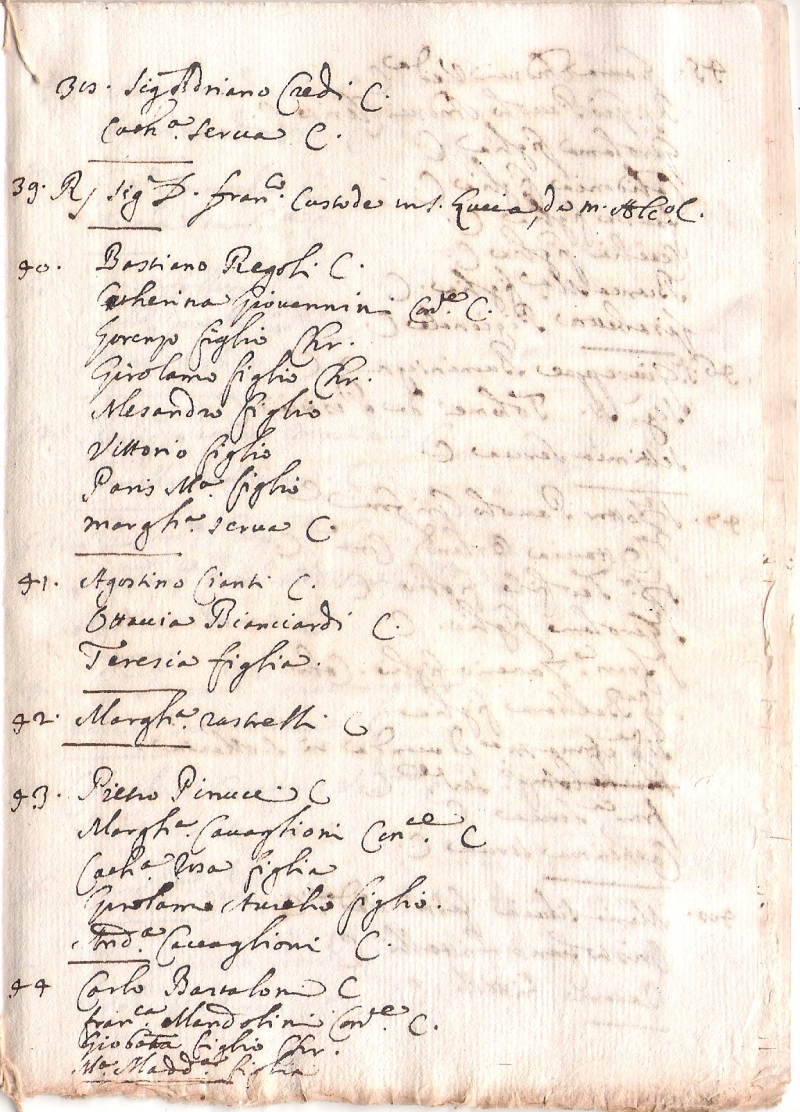 38. Sig.r Adriano Credi C.
Cath.a serua C.
39. R/ Sig.r D. Fran.co Custode in S. Lucia, da M. Alc.o C.
40. Bastiano Regoli C.
Catherina Giovannini Con.te C.
Lorenzo figlio Chr.
Girolamo figlio Chr.
Alesandro figlio
Vittorio figlio
Paris M.a figlio
Margh.a serua C.
41. Agostino Cianti C.
Ottavia Bianciardi C.
Teresia figlia.
42. Margh.a rastrelli C
43. Pietro Pinucci C
Margh.a Cavaglioni Con.te C
Cath.a Rosa figlia
Girolamo Aurelio figlio.
And.a Cavaglioni C.
44 Carlo Bartaloni C
Fran.ca Mandolini Con.te C.
Giobatta figlio Chr.
M.a Madd.a figlia